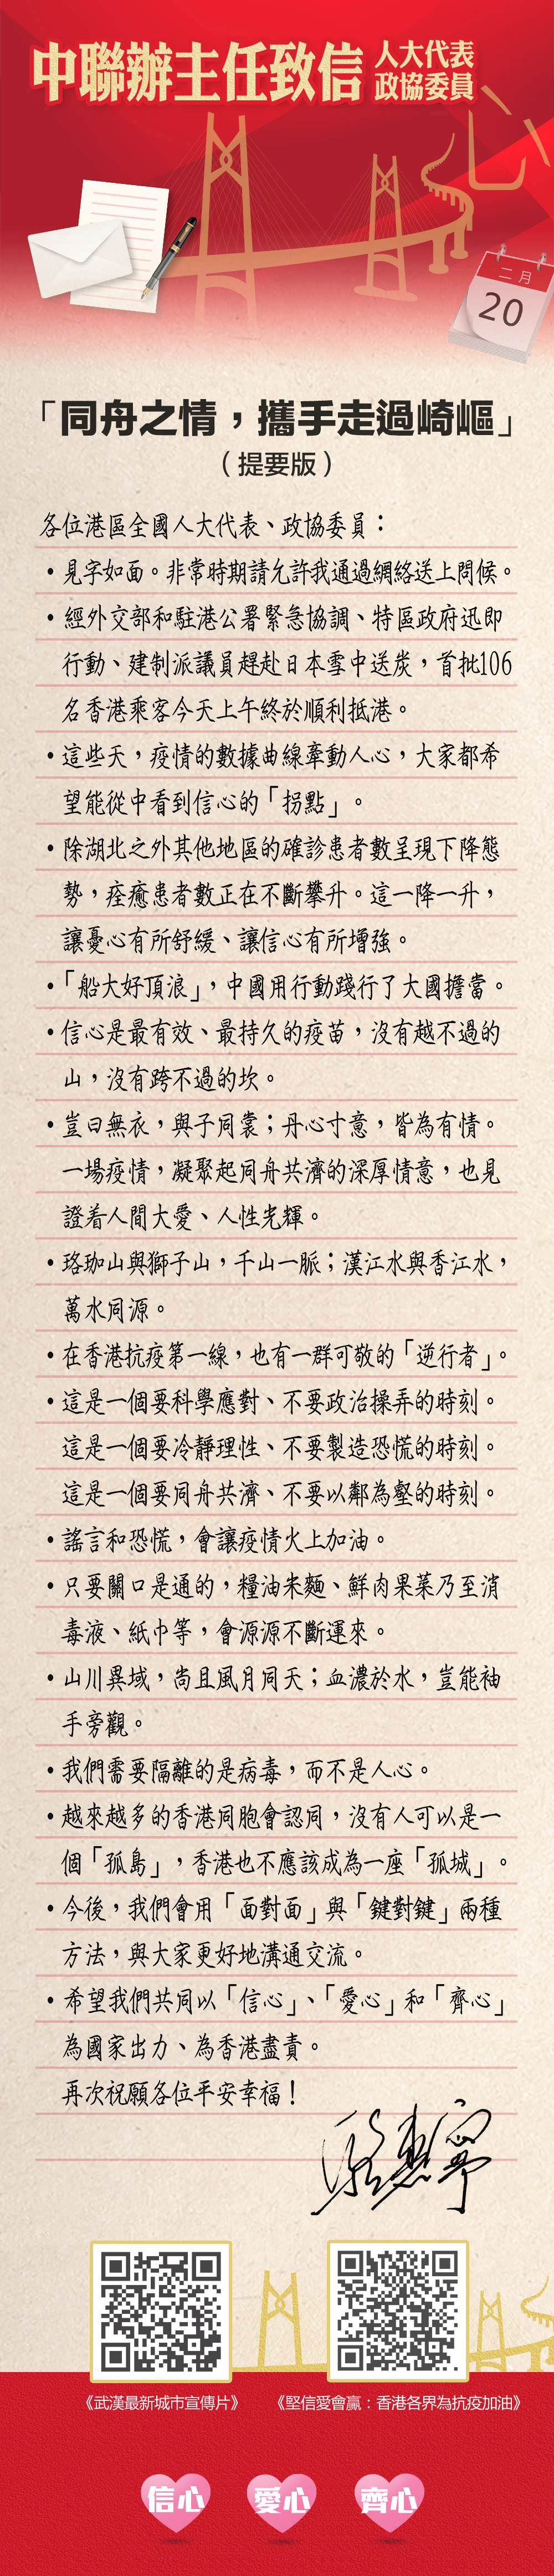 中聯辦主任致信
人大代表
政協委員
二月
20
「同舟之情，攜手走過崎嶇」
（提要版）
各位港區全國人大代表、政協委員：
・見字如面。非常時期請允許我通過網絡送上問候。
・經外交部和駐港公署緊急協調、特區政府迅即
行動、建制派議員趕赴日本雪中送炭，首批106
名香港乘客今天上午終於順利抵港。
・這些天，疫情的數據曲線牽動人心，大家都希
望能從中看到信心的「拐點」。
・除湖北之外其他地區的確診患者數呈現下降態
勢，痊癒患者數正在不斷攀升。這一降一升，
讓憂心有所舒緩、讓信心有所增強。
・「船大好頂浪」，中國用行動踐行了大國擔當。
・信心是最有效、最持久的疫苗，沒有越不過的
山，沒有跨不過的坎。
・豈曰無衣，與子同裳；丹心寸意，皆為有情。
一場疫情，凝聚起同舟共濟的深厚情意，也見
證着人間大愛、人性光輝。
・珞珈山與獅子山，千山一脈；漢江水與香江水，
萬水同源。
・在香港抗疫第一線，也有一群可敬的「逆行者」。
・這是一個要科學應對、不要政治操弄的時刻。
這是一個要冷靜理性、不要製造恐慌的時刻。
這是一個要同舟共濟、不要以鄰為壑的時刻。
・謠言和恐慌，會讓疫情火上加油。
・只要關口是通的，糧油米麵、鮮肉果菜乃至消
毒液、紙巾等，會源源不斷運來。
・山川異域，尚且風月同天；血濃於水，豈能袖
手旁觀。
・我們需要隔離的是病毒，而不是人心。
・越來越多的香港同胞會認同，沒有人可以是一
個「孤島」，香港也不應該成為一座「孤城」。
・今後，我們會用「面對面」與「鍵對鍵」兩種
方法，與大家更好地溝通交流。
・希望我們共同以「信心」、「愛心」和「齊心」
為國家出力、為香港盡責。
再次祝願各位平安幸福！
駱惠寧
《武漢最新城市宣傳片》
《堅信愛會贏：香港各界為抗疫加油》
信心
愛心
齊心